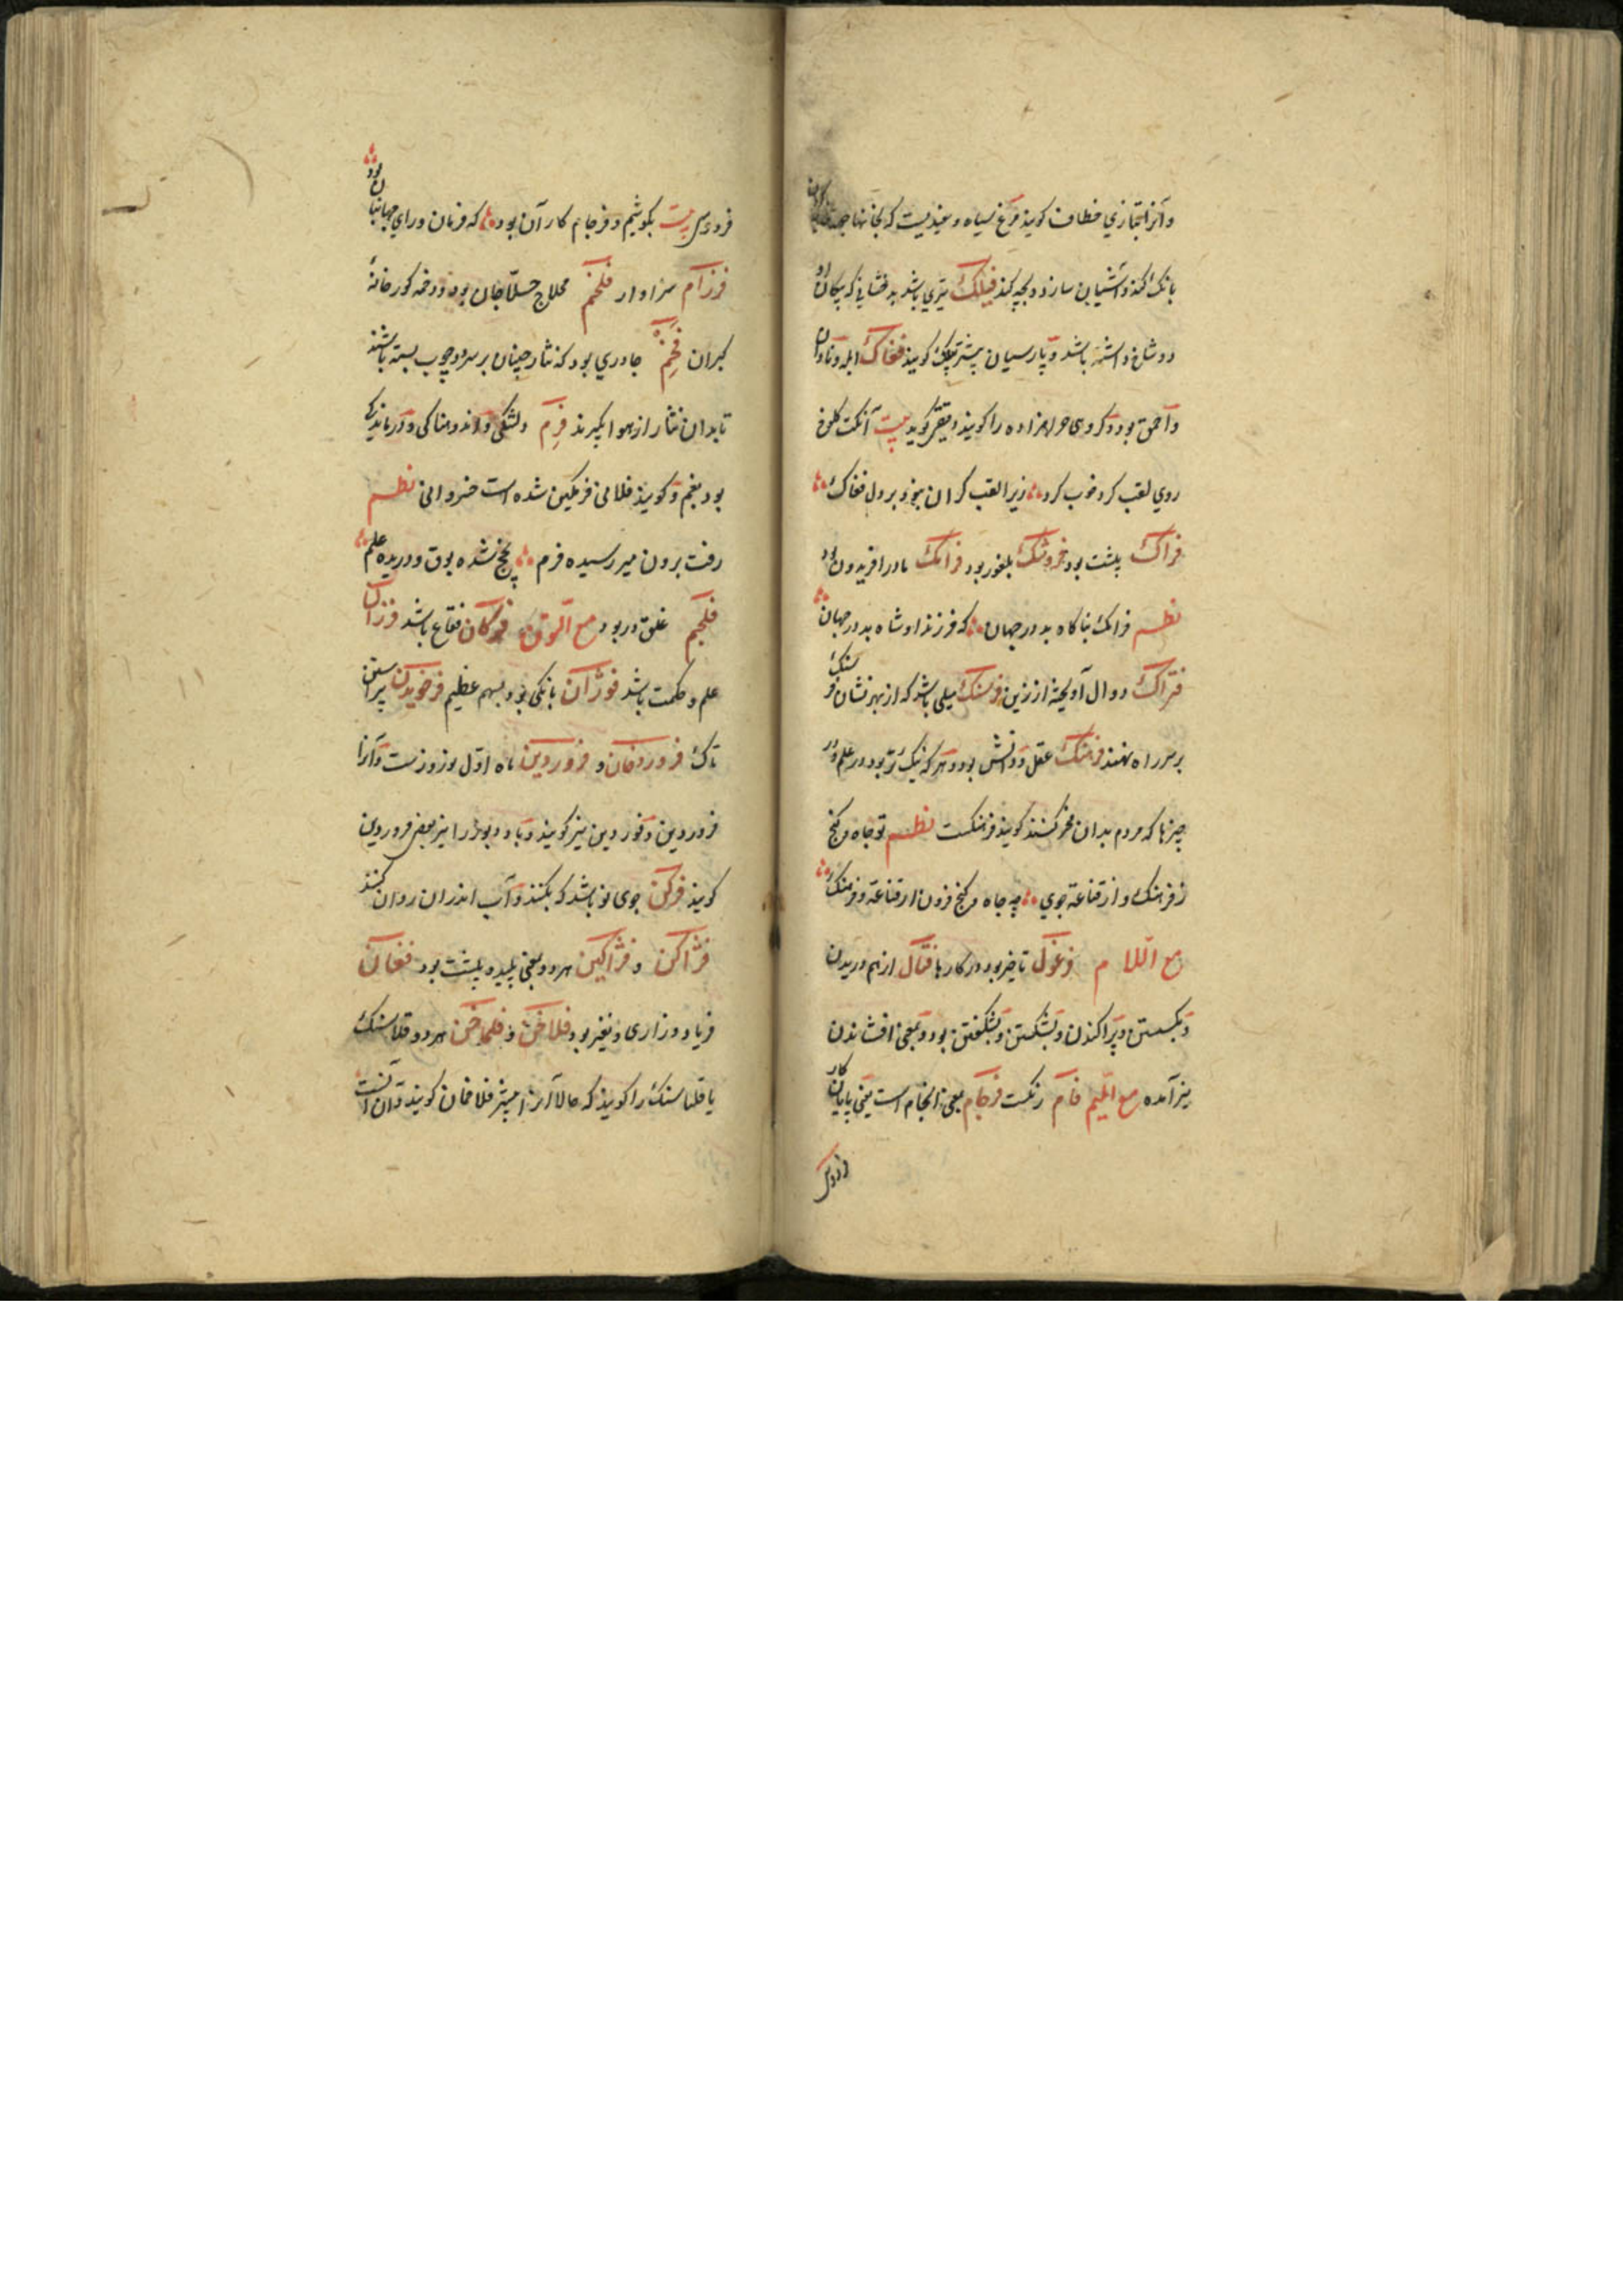 وآنرا بتازي خطاف کویند مرغ سیاه و سفیدیست که بجانها جهد کون
بانک کند و آشیان سازد و بچه کند فیلک تیری باشد بدخشانی که پیکان او
دو شاخ داشته باشد و پارسیان بیشتر پیلک کویند فغاک ابله و نادان
و احمق بود و کروهی حرامزاده را کویند دقیقی کوید بیت آنکت کلوخ
روي لقب کرد خوب کرد زیرا لقب کران نبود بر دل فغاک
فراک پلشت بود فروشک بلغور بود فرانک مادر افریدون بود
نظم فرانک بناکاه بد در جهان که فرزند او شاه بد در جهان
فتراک دوال آویخته از زین فرسنک میلی باشد که از بهر نشان فرسنک
بر سر راه نهند فرهنک عقل و دانش بود و هر که نیک تر بود در علم و در
چیزها که مردم بدان فخر کنند کویند فرهنکست نظم تو جاه و کنج
ز فرهنک و از قناعة جوي چه جاه و کنج فزون از قناعة و فرهنک
مع اللام فرغول تاخیر بود در کارها فتال از هم دریدن
و بکسستن و پراکندن و بشکستن و بشکفتن بود و بمعنی افشاندن
نیز آمده مع المیم فام رنکست فرجام بمعنی انجام است یعنی پایان کار
فردوسی
فردوسی بیت بکوشیم و فرجام کار آن بود که فرمان و راي جهانبان بود
فرزام سزاوار فلخم محلاج حلاجان بود و دخمه کورخانۀ
کبران فخم چادري بود که نثار چینان بر سر دو چوب بسته باشند
تا بدان نثار از هوا بکیرند فرم دلتنکی و اندوهناکی و درماندکی
بود بغم و کویند فلانی فرمکین شده است خسروانی نظم
رفت برون میر رسیده فرم پخج شده بوق و دریده علم
فلجم غلق در بود مع النون فوکان فقاع باشد فرزان
علم و حکمت باشد فوژان بانکی بود بسهم عظیم فرخویدن پیراستن
تاک فروردخان و فروردین ماه اول نوروزست و آنرا
فروردین و فوردین نیز کویند و باد دبور را نیز بعضی فروردین
کویند فرکن جوی نو باشد که بکنند و آب اندران روان کنند
فژاکن و فژاکین هر دو بمعنی پلید و پلشت بود فغان
فریاد و زاری و نفیر بود فلاخن و فلماخن هر دو قلاسنک
یا قلماسنک را کویند که حالا آنرا بیشتر فلاخان کویند و آن آنست